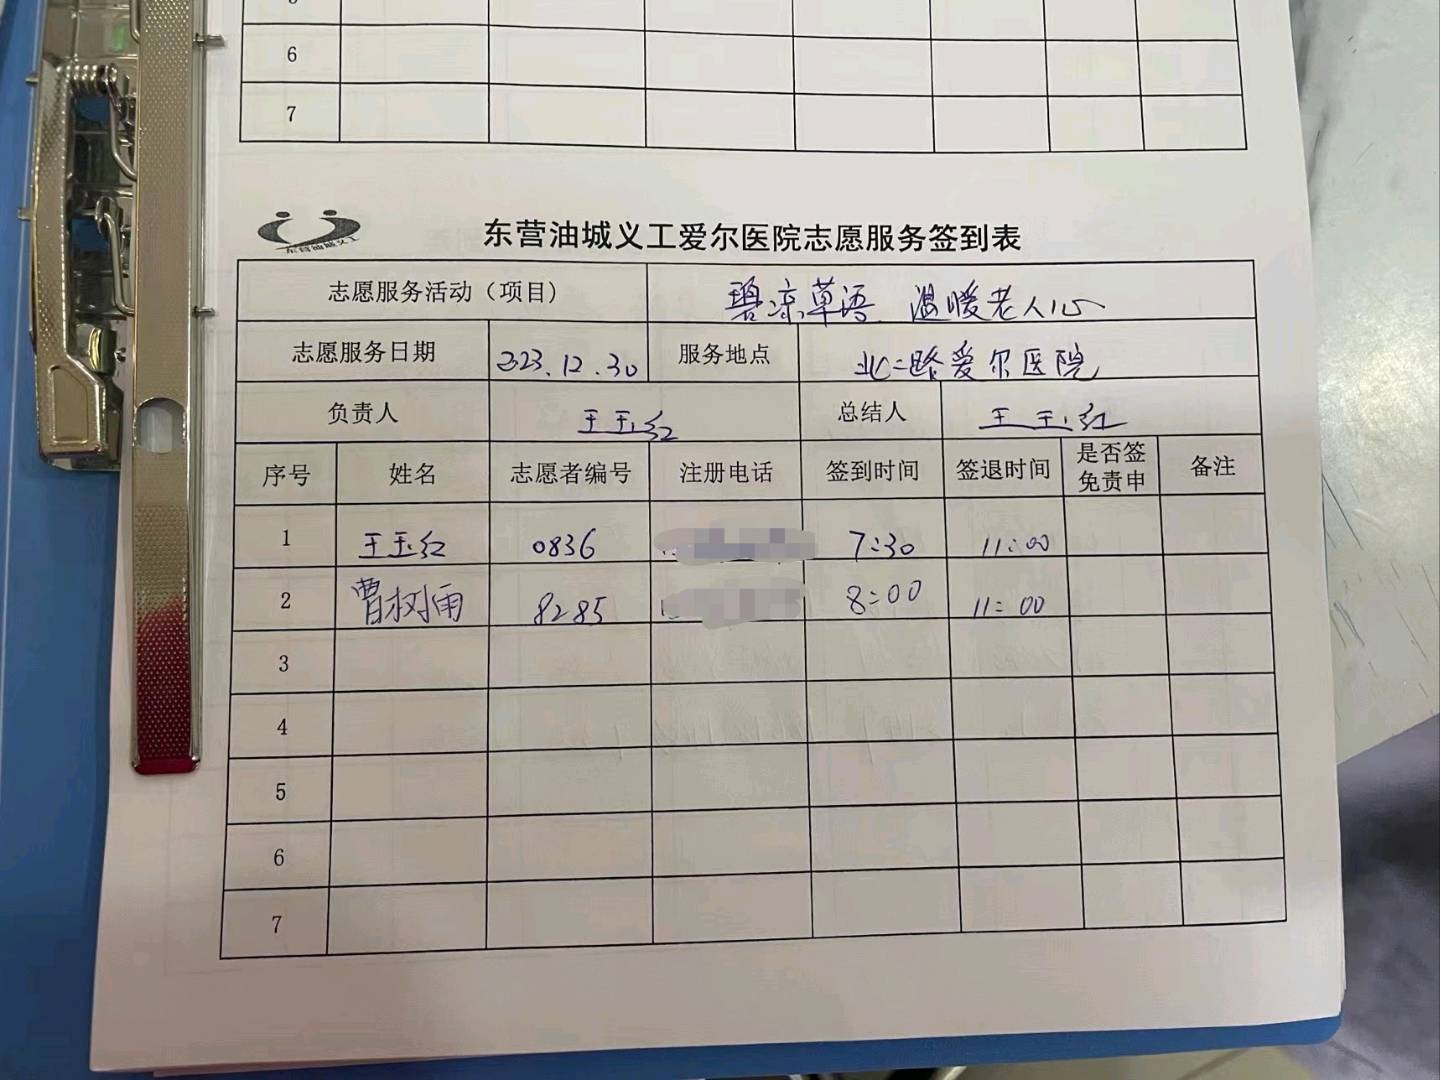 6
7
东营油城义工
东营油城义工爱尔医院志愿服务签到表
志愿服务活动（项目） 碧凉草语 温暖老人心
志愿服务日期 2023.12.30 服务地点 北二路爱尔医院
负责人 王玉红 总结人 王玉红
序号 姓名 志愿者编号 注册电话 签到时间 签退时间 是否签免责申 备注
1 王玉红 0836 7:30 11:00
2 曹树雨 8285 8:00 11:00
3
4
5
6
7